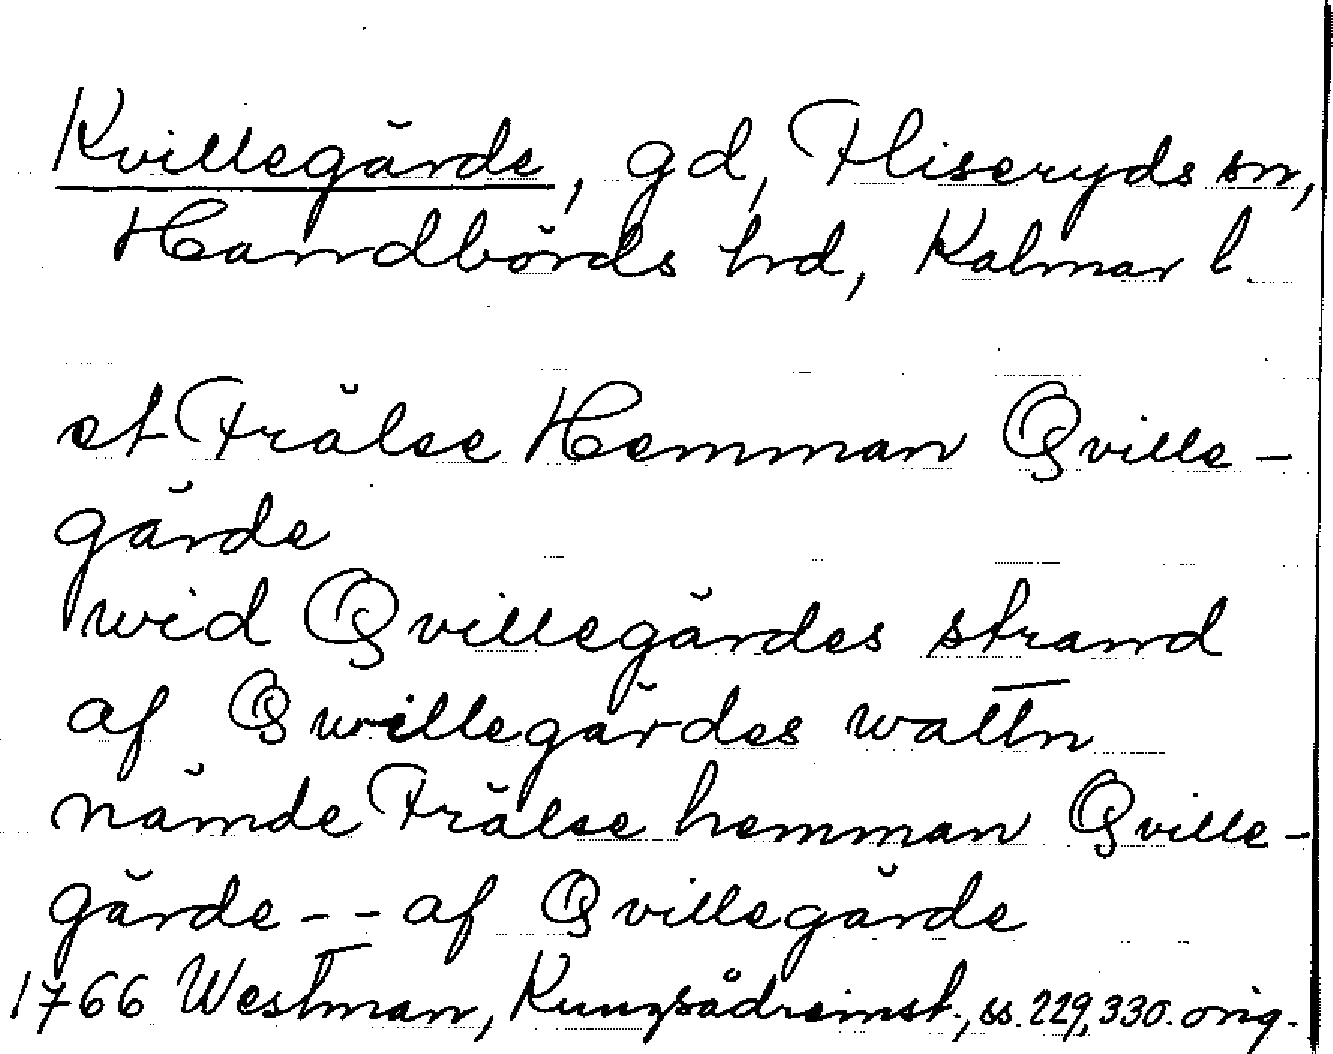 Kvillegärde, gd, Fliseryds sn,
Handbörds hd, Kalmar l.
et Frälse Hemman Qville-
gärde
wid Qvillegärdes strand
af Qwillegärdes wattn
nämde Frälse hemman Qville-
gärde -- af Qvillegärde
1766 Westman, Kungsådreinst., ss. 229, 330. orig.